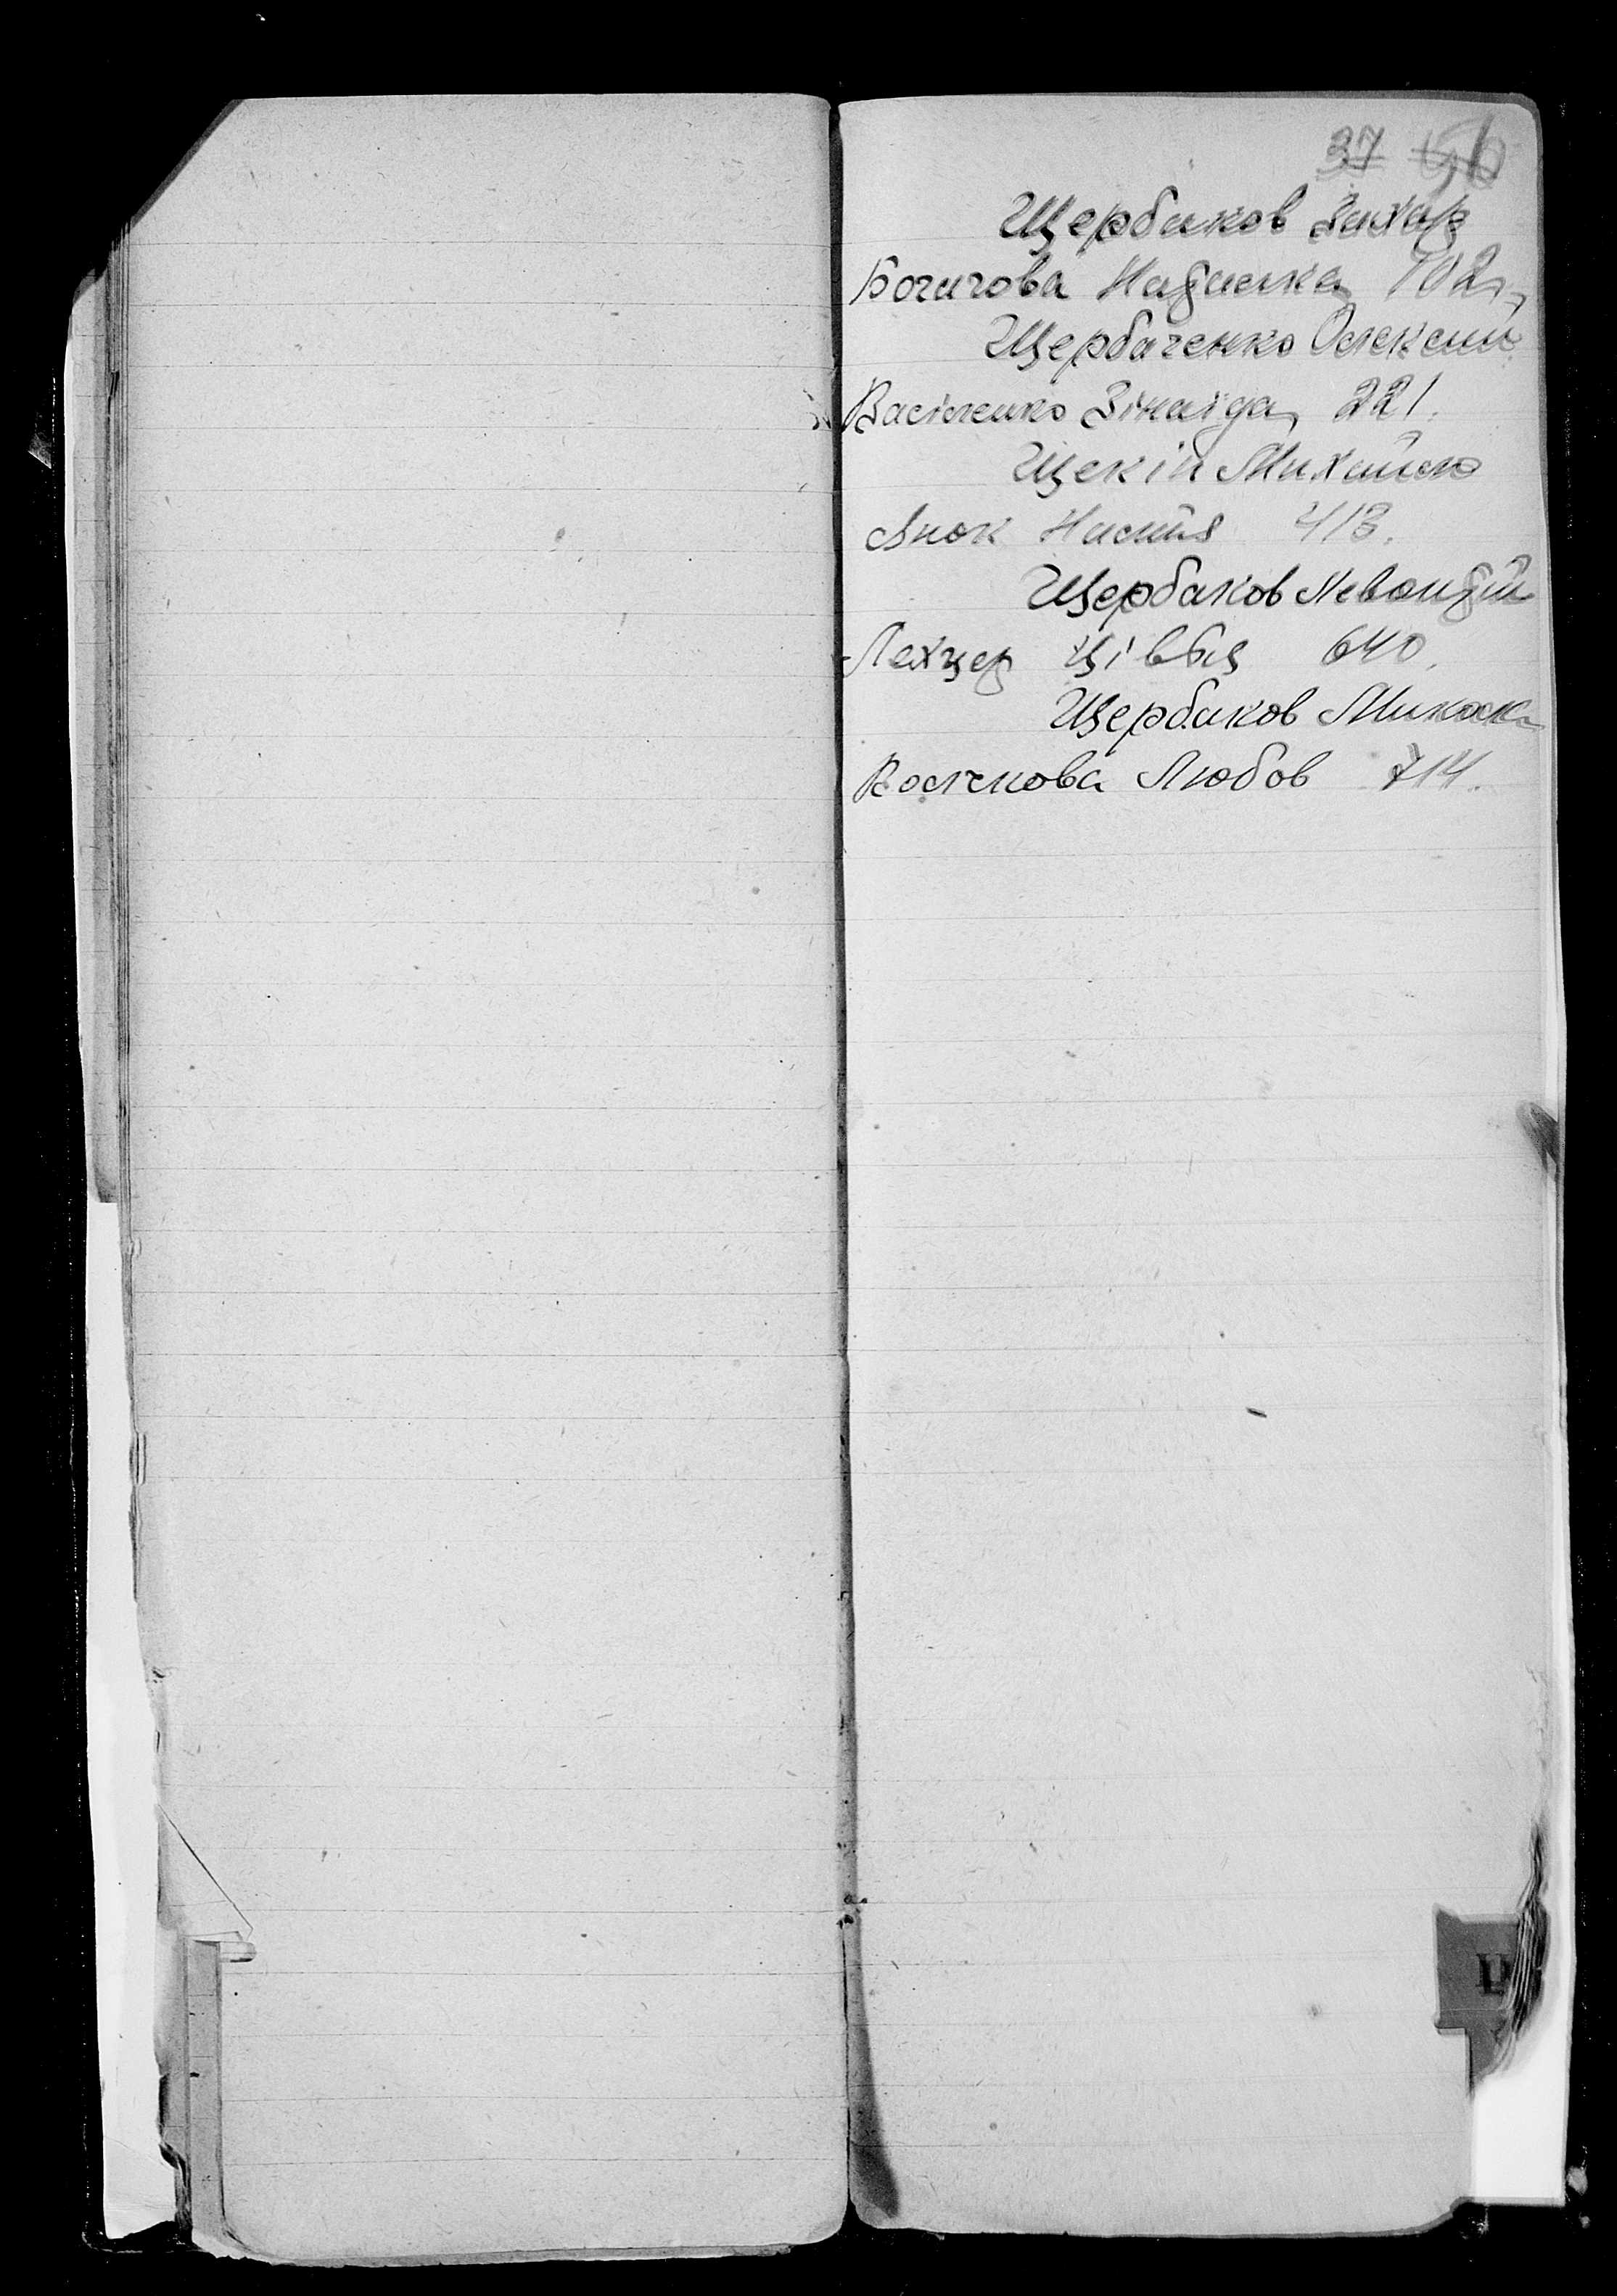 37
Щербаков Захар
Богачова Надаська 102
Щербаченко Олексій
Васіленко Зінаїда 221.
Щекін Михайло
Янок Настя 413.
Щербаков Левонтій
Лехцер Ціввя 640.
Щербаков Микола
Волчкова Любов 714.
Ц